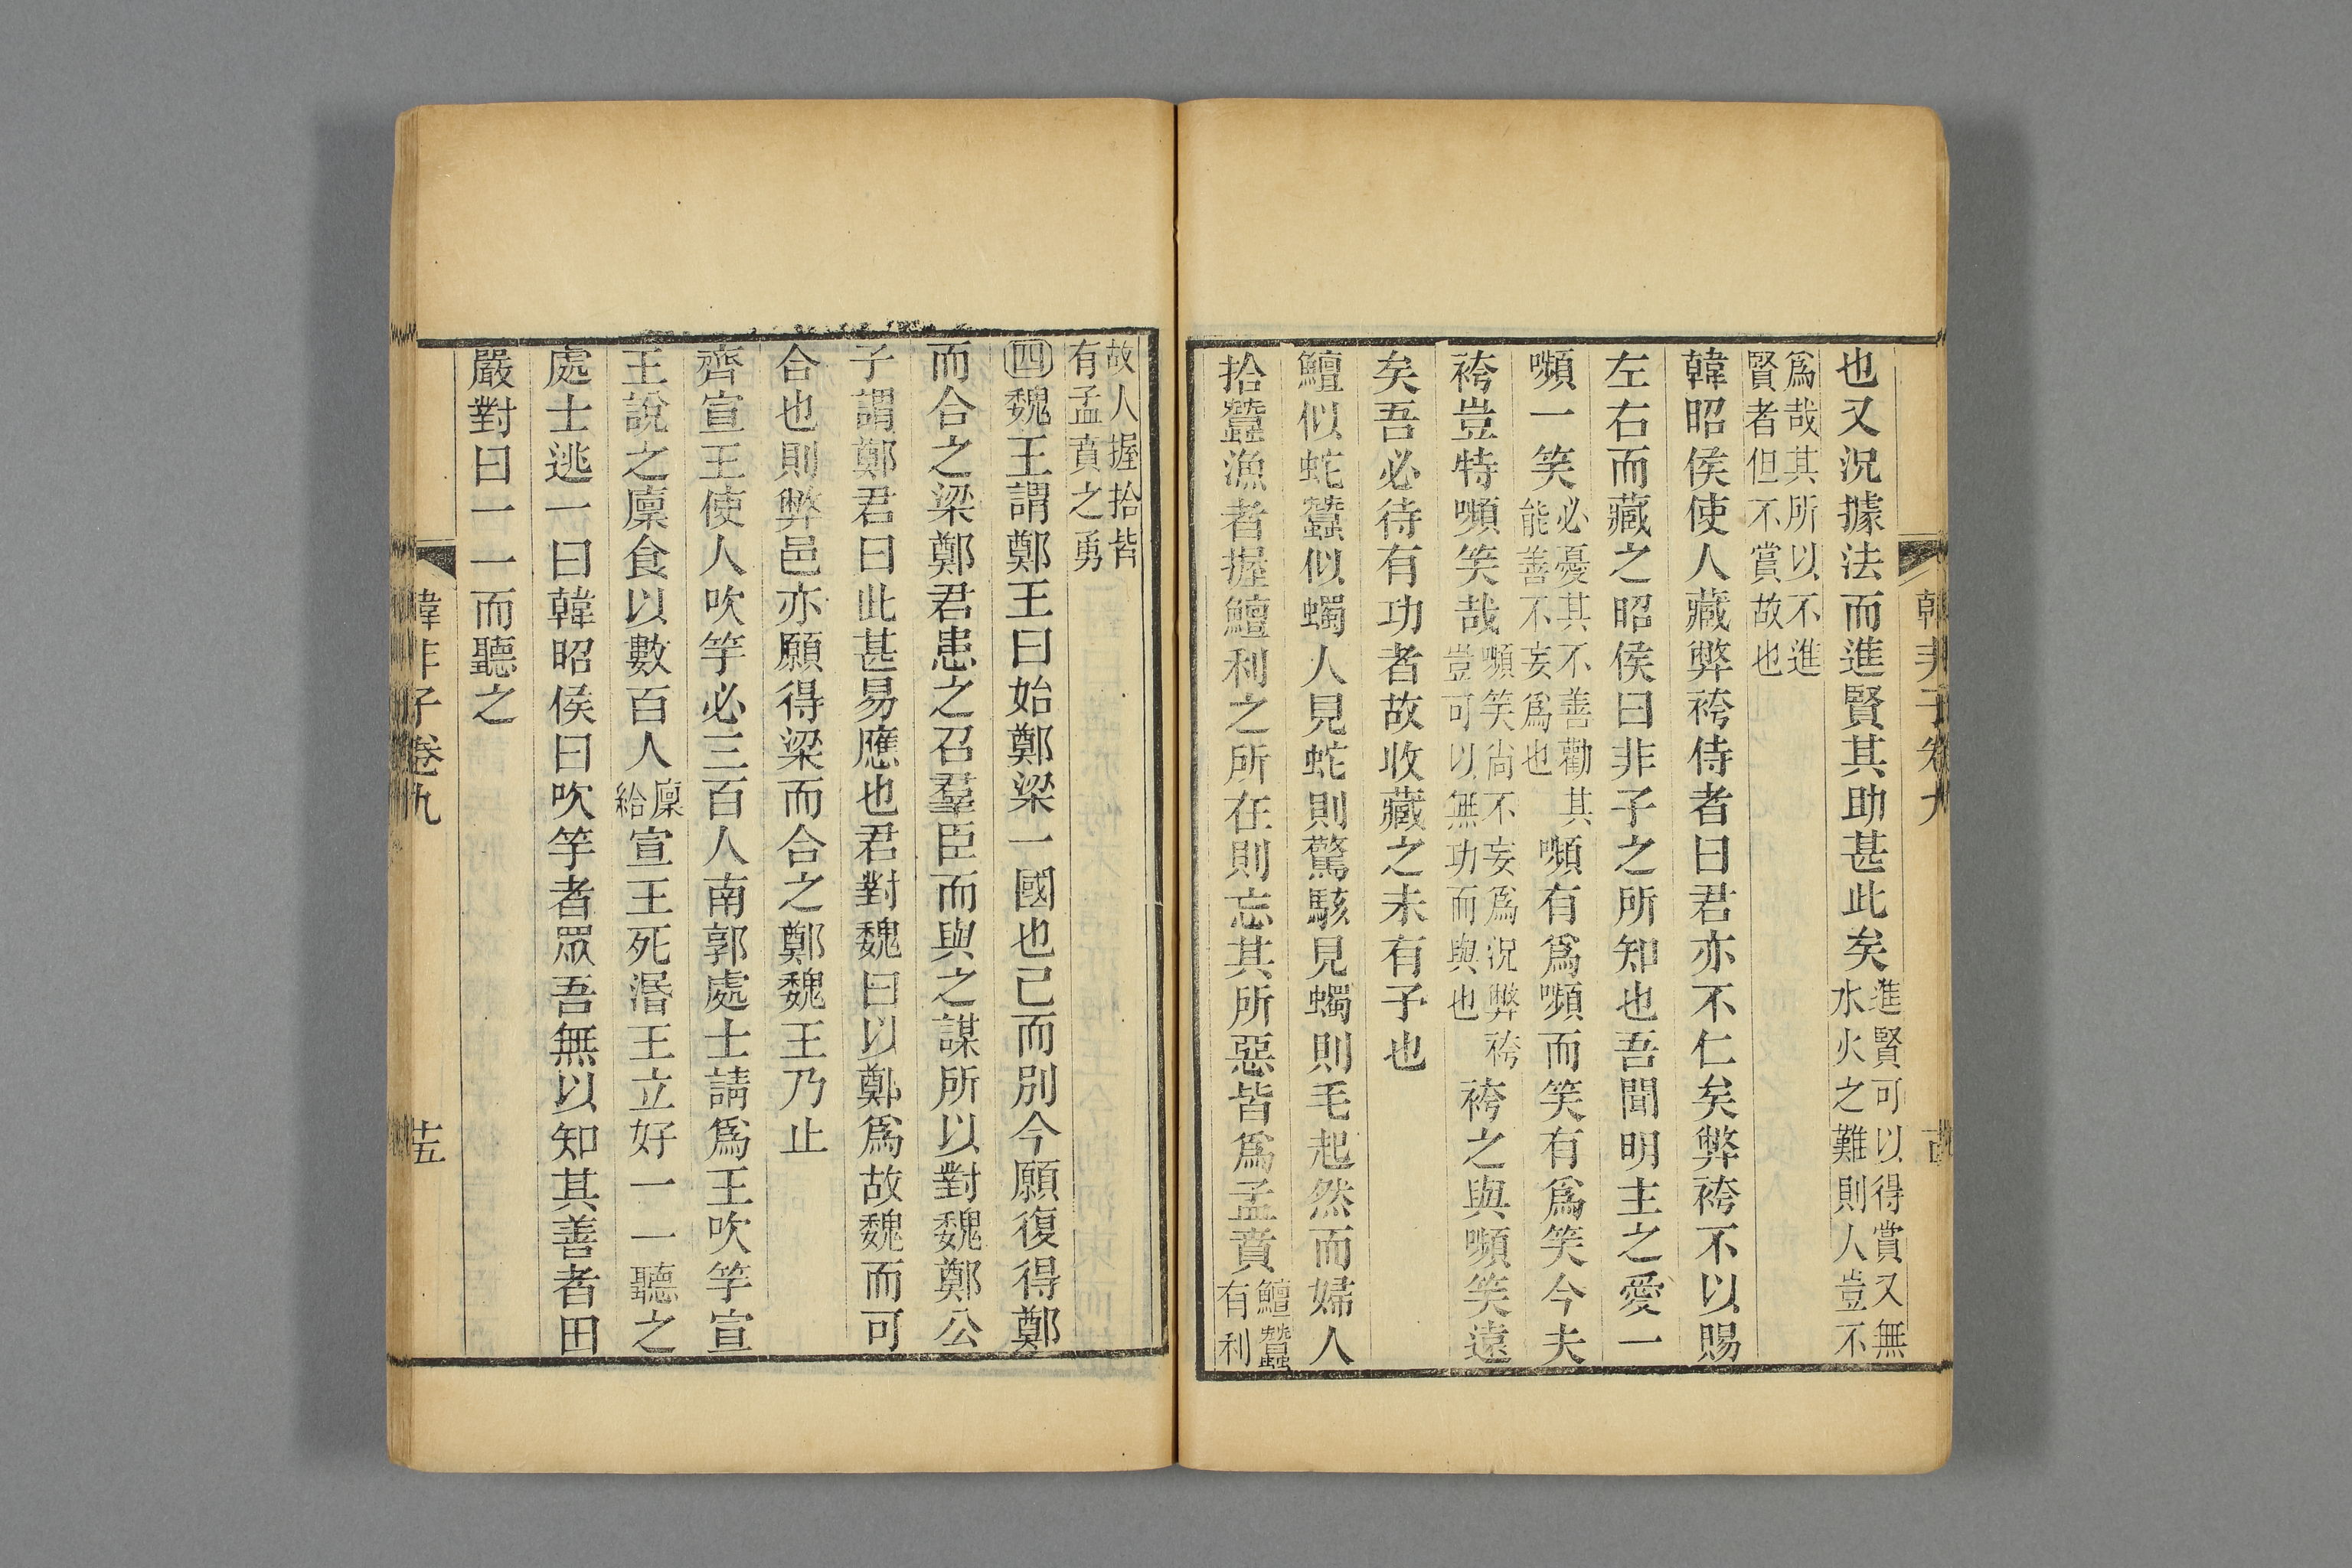 韓非子卷九
也又況據法而進賢其助甚此矣進賢可以得賞又無水火之難則人豈不
爲哉其所以不進賢者但不賞故也
韓昭侯使人藏弊袴侍者曰君亦不仁矣弊袴不以賜
左右而藏之昭侯曰非子之所知也吾聞明主之愛一
嚬一笑必憂其不善勸其能善不妄爲也嚬有爲嚬而笑有爲笑今夫
袴豈特嚬笑哉嚬笑尚不妄爲況弊袴豈可以無功而與也袴之與嚬笑遠
矣吾必待有功者故收藏之未有予也
鱣似蛇蠶似蠋人見蛇則驚駭見蠋則毛起然而婦人
拾蠶漁者握鱣利之所在則忘其所惡皆爲孟賁鱣蠶有利
故人握拾皆有孟賁之勇
四魏王謂鄭王曰始鄭梁一國也已而別今願復得鄭
而合之梁鄭君患之召羣臣而與之謀所以對魏鄭公
子謂鄭君曰此甚易應也君對魏曰以鄭爲故魏而可
合也則弊邑亦願得梁而合之鄭魏王乃止
齊宣王使人吹竽必三百人南郭處士請爲王吹竽宣
王說之廩食以數百人廩給宣王死湣王立好一一聽之
處士逃一曰韓昭侯曰吹竽者眾吾無以知其善者田
嚴對曰一一而聽之
韓非子卷九
十五